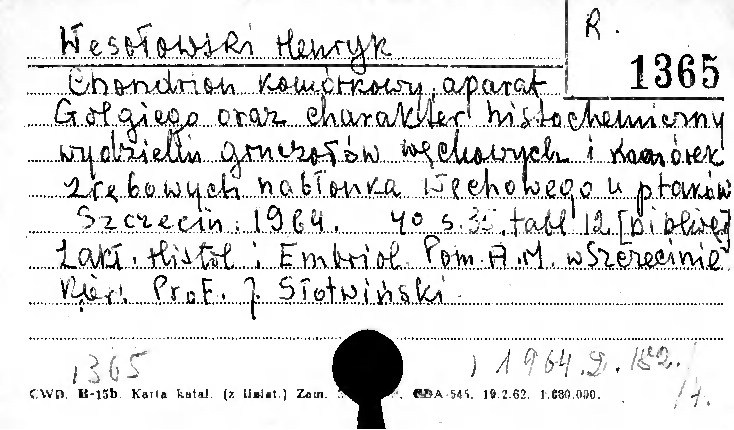 R.
1365
Wesołowski Henryk
Chondrion komórkowy, aparat
Golgiego oraz charakter histochemiczny
wydzielin gruczołów węchowych i komórek
zrębowych nabłonka węchowego u ptaków
Szczecin. 1964. 40 s. 35, tabl 12
Zakł. Histol i Embriol. Pom. A. M. w Szczecinie
Kier. Prof. J. Słotwiński.
1365 1964. 2. 182.
CWD. B-15b. Karta katal. (z liniat.) Zam. CDA-545. 19.2.62. 1.680.000.